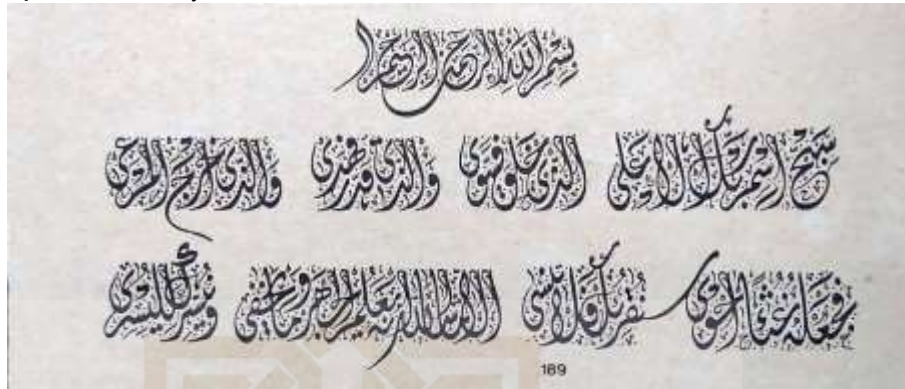 بسم الله الرحمن الرحيم
سبح اسم ربك الأعلى الذي خلق فسوى والذي قدر فهدى والذي أخرج المرعى
فجعله غثاء أحوى سنقرئك فلا تنسى إلا ما شاء الله إنه يعلم الجهر وما يخفى ونيسرك لليسرى
189